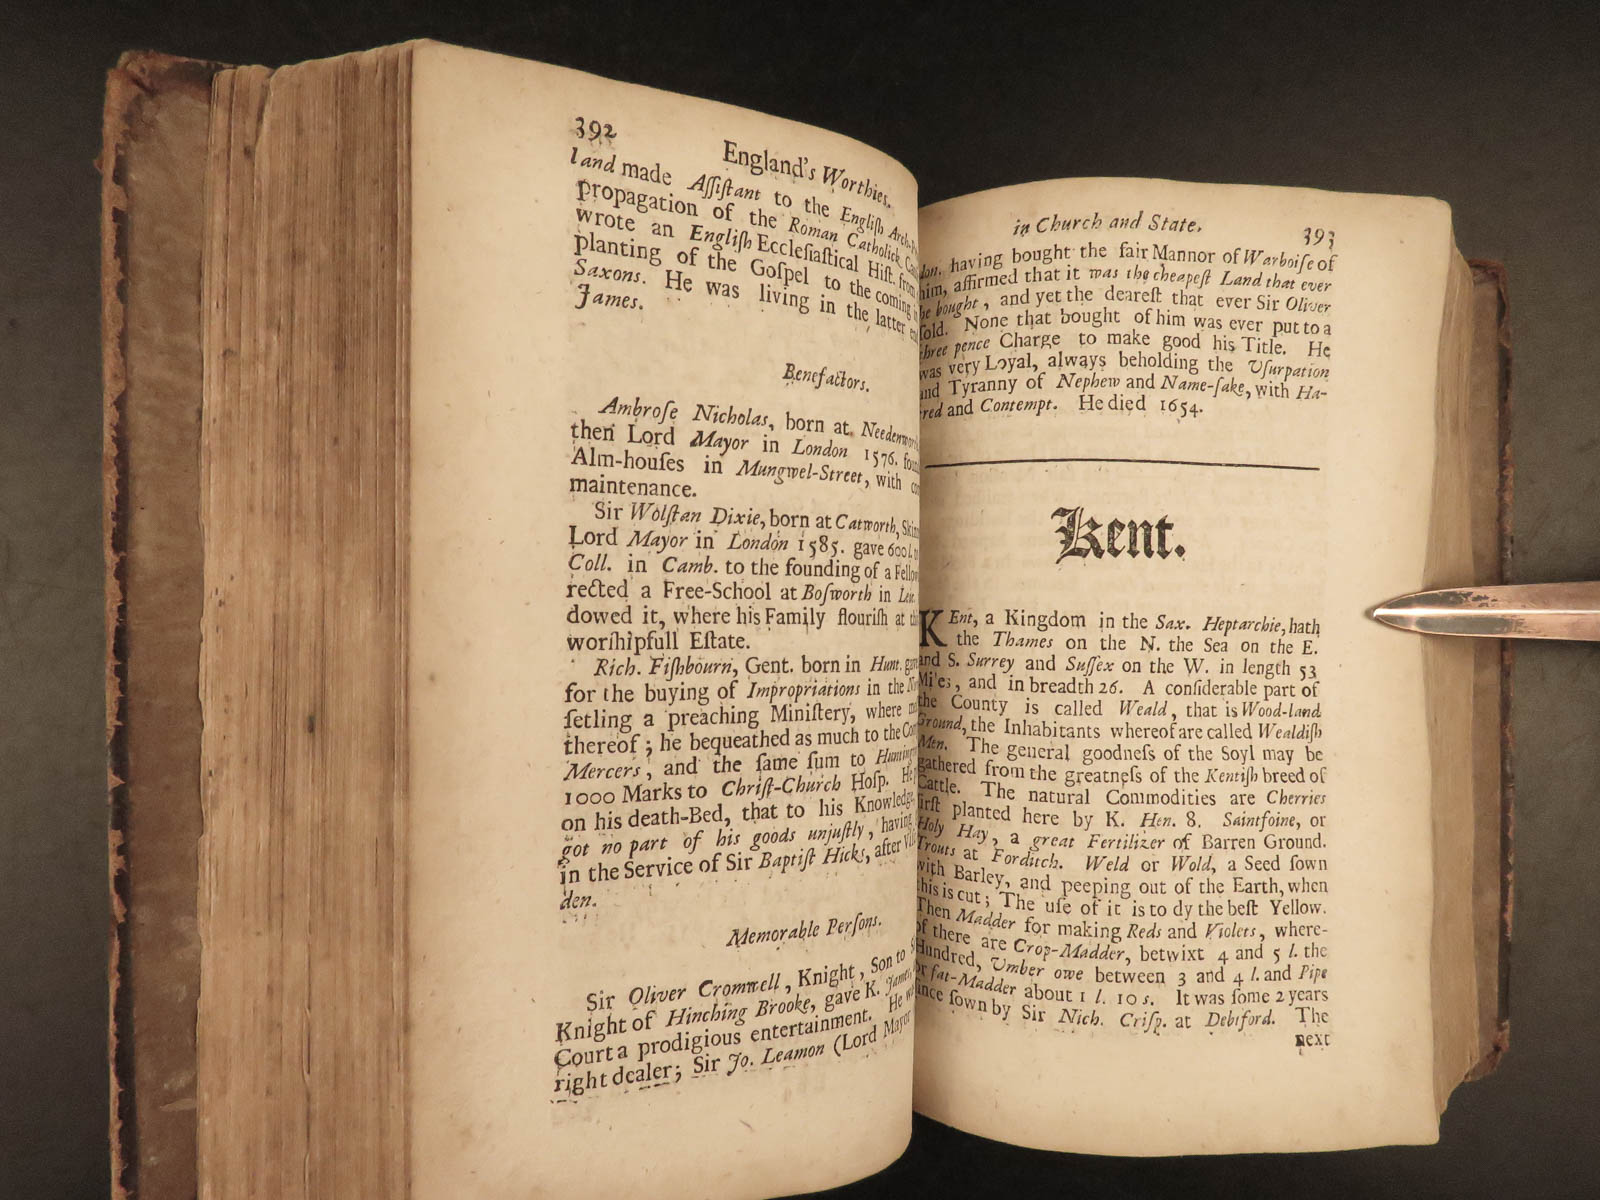 392
England's Worthies.
land made Aſſiſtant to the Engliſh Arch-
propagation of the Roman Catholick
wrote an Engliſh Eccleſiaſtical Hiſt. from
planting of the Goſpel to the coming
Saxons. He was living in the latter
James.
Benefactors.
Ambroſe Nicholas, born at
then Lord Mayor in London 1576.
Alm-houſes in Mungwel-Street, with
maintenance.
Sir Wolſtan Dixie, born at Catworth,
Lord Mayor in London 1585. gave 600 l.
Coll. in Camb. to the founding of a
rected a Free-School at Boſworth in
dowed it, where his Family flouriſh at
worſhipfull Eſtate.
Rich. Fiſhbourn, Gent. born in Hunt.
for the buying of Impropriations in the
ſetling a preaching Miniſtery, where
thereof; he bequeathed as much to the
Mercers, and the ſame ſum to
1000 Marks to Chriſt-Church Hoſp.
on his death-Bed, that to his Knowledge,
got no part of his goods unjuſtly, having
in the Service of Sir Baptiſt Hicks, after
den.
Memorable Perſons.
Sir Oliver Cromwell, Knight, Son to
Knight of Hinching Brooke, gave K. James
Court a prodigious entertainment. He
right dealer; Sir Jo. Leamon (Lord Mayor
in Church and State.
393
don, having bought the fair Mannor of Warboiſe of
him, affirmed that it was the cheapeſt Land that ever
he bought, and yet the deareſt that ever Sir Oliver
ſold. None that bought of him was ever put to a
three pence Charge to make good his Title. He
was very Loyal, always beholding the Uſurpation
and Tyranny of Nephew and Name-ſake, with Ha-
tred and Contempt. He died 1654.
Kent.
KEnt, a Kingdom in the Sax. Heptarchie, hath
the Thames on the N. the Sea on the E.
and S. Surrey and Suſſex on the W. in length 53
Miles, and in breadth 26. A conſiderable part of
the County is called Weald, that is Wood-land
Ground, the Inhabitants whereof are called Wealdiſh
Men. The general goodneſs of the Soyl may be
gathered from the greatneſs of the Kentiſh breed of
Cattle. The natural Commodities are Cherries
firſt planted here by K. Hen. 8. Saintfoine, or
Holy Hay, a great Fertilizer of Barren Ground.
Trouts at Forditch. Weld or Wold, a Seed ſown
with Barley, and peeping out of the Earth, when
this is cut; The uſe of it is to dy the beſt Yellow.
Then Madder for making Reds and Violets, where-
of there are Crop-Madder, betwixt 4 and 5 l. the
Hundred, Umber owe between 3 and 4 l. and Pipe
or fat-Madder about 1 l. 10 s. It was ſome 2 years
ſince ſown by Sir Nich. Criſp. at Debtford. The
next